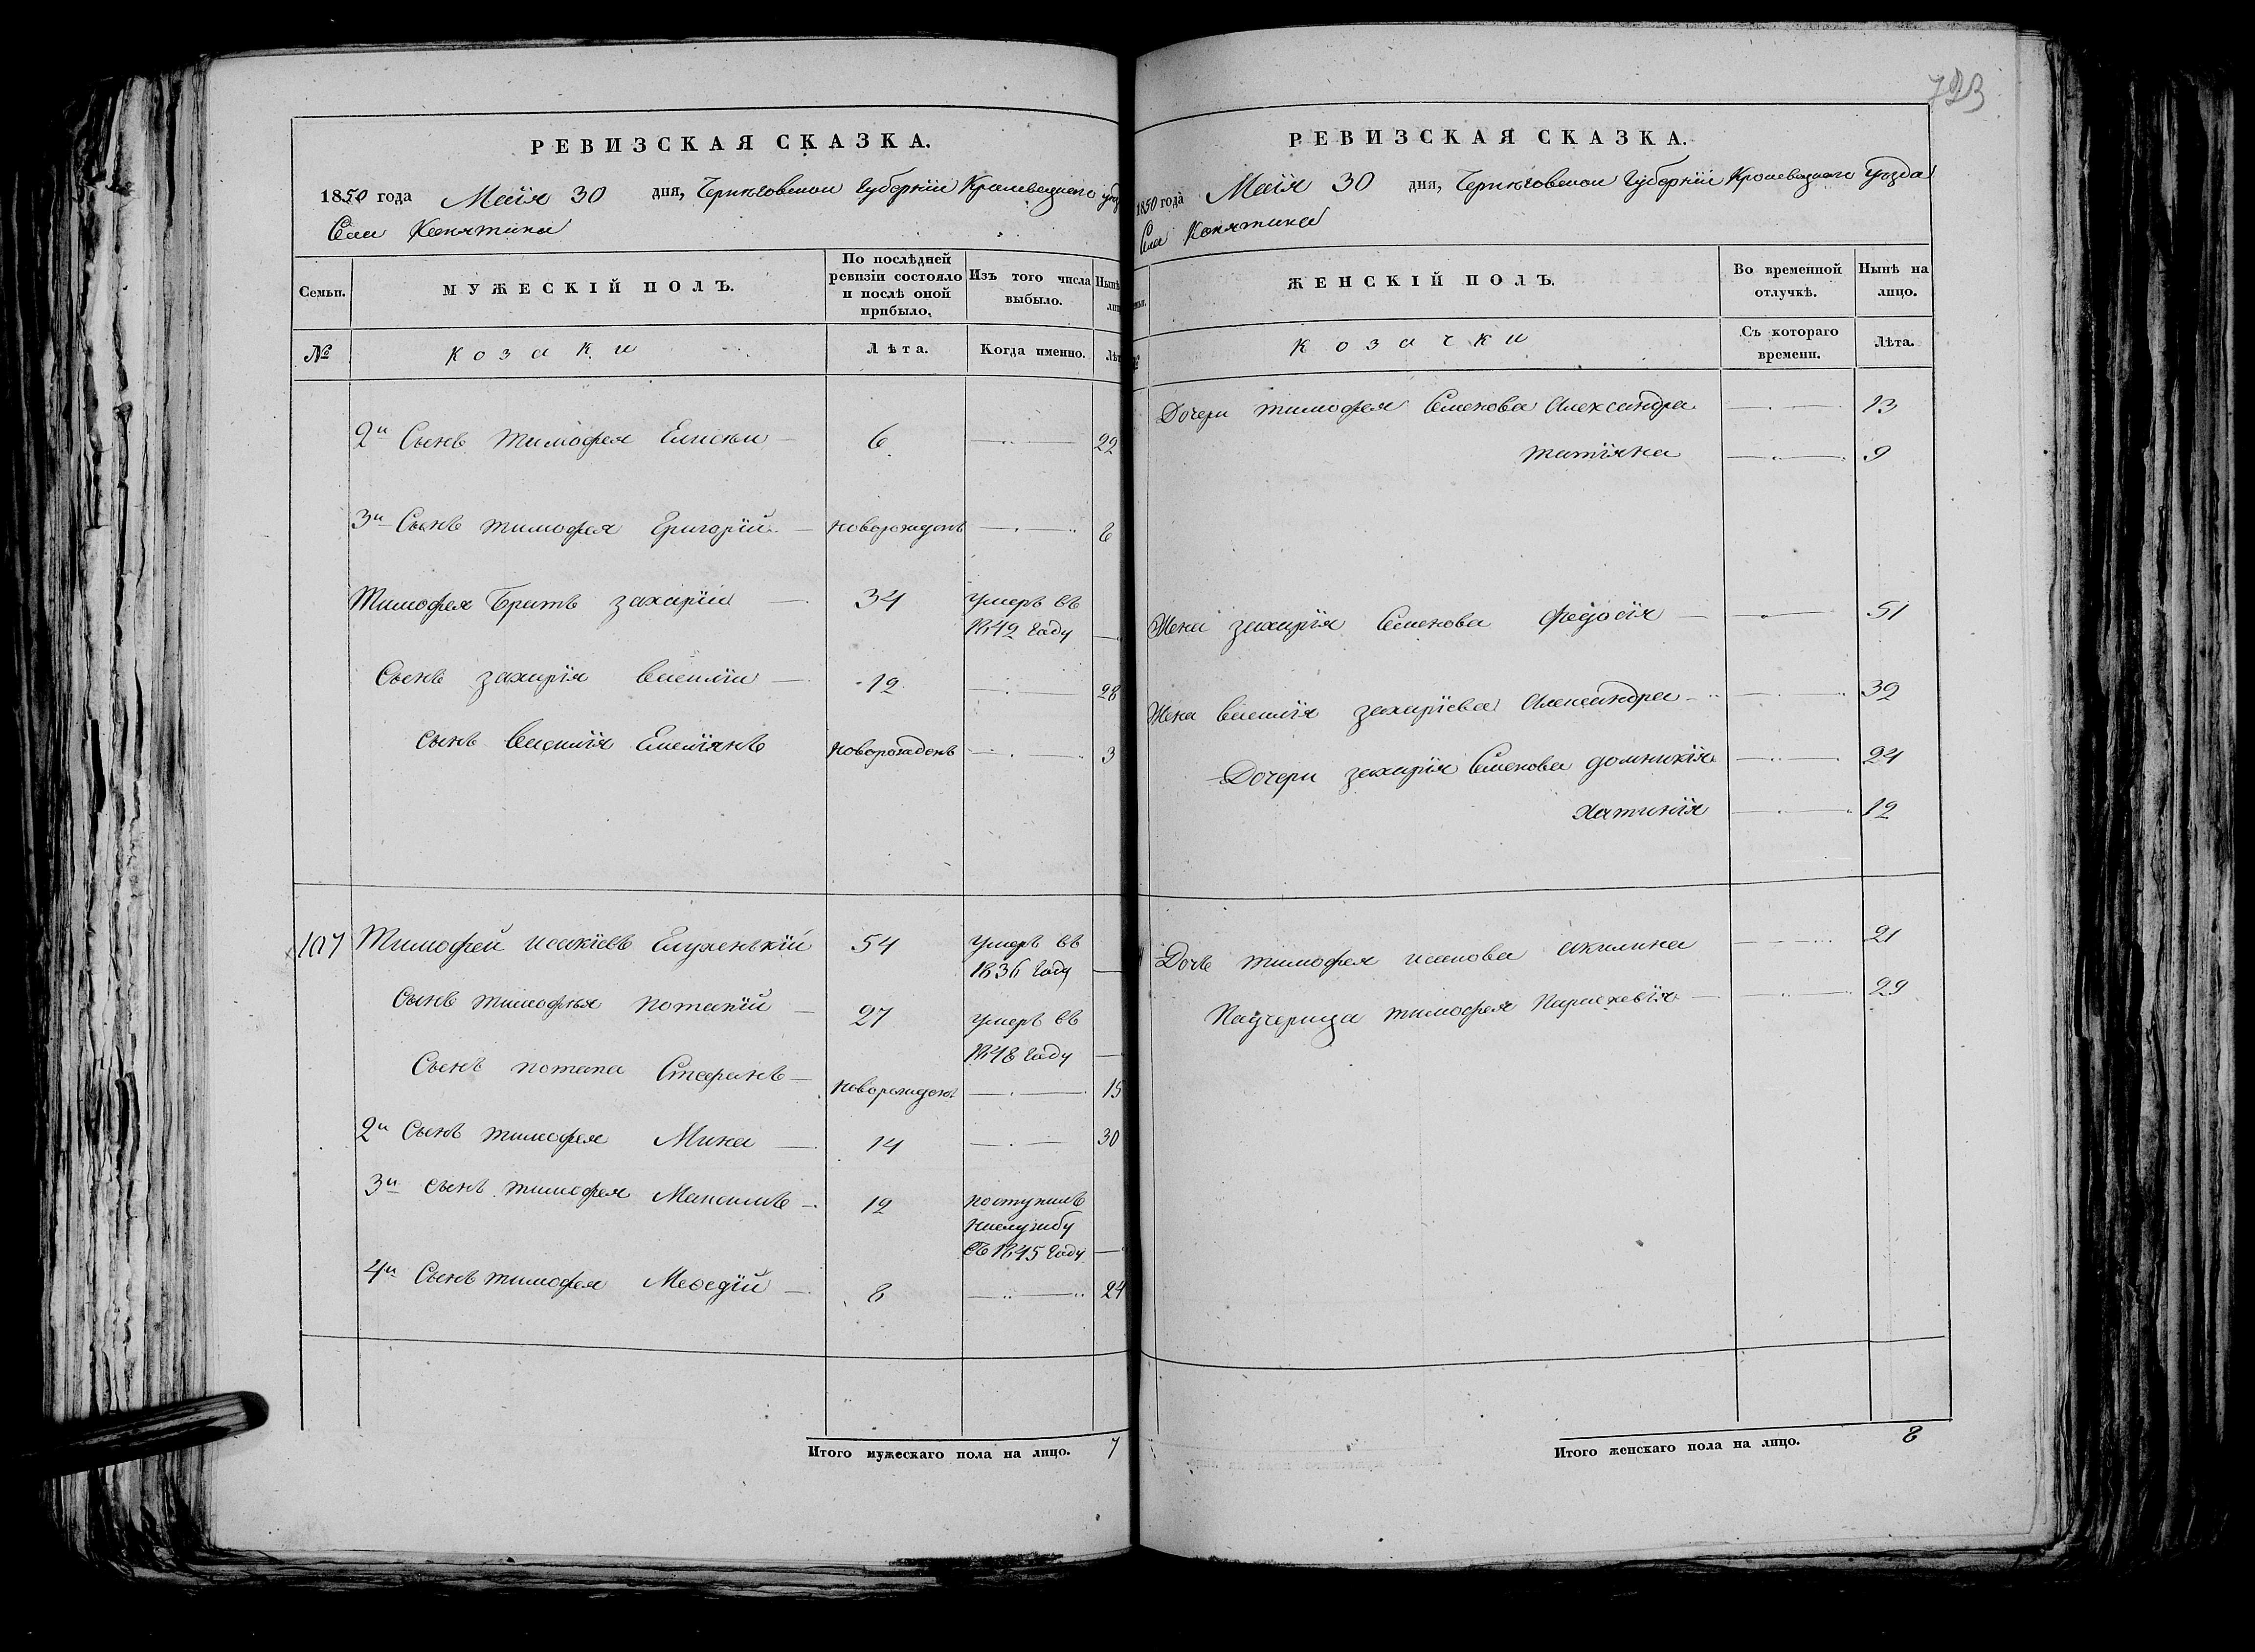 РЕВИЗСКАЯ СКАЗКА.
1850 года Маія 30 дня, Черниговской Губерніи Кролевецкаго уѣз
Села Конятина
Семьи.
МУЖЕСКІЙ ПОЛЪ.
По послѣдней ревизіи состояло и послѣ оной прибыло.
Изъ того числа выбыло.
Нынѣ
лиц
№
козаки
Лѣта.
Когда именно.
Лѣт
2й Сынъ тимофея Елисей 6 22
3й Сынъ тимофея Григорій новорожденъ 8
Тимофея Братъ захарій 34 умеръ въ
1849 Году
Сынъ захарія василій 12 28
сынъ василія Емеліянъ новорожденъ 3
107 Тимофей исакіевъ 54 умеръ въ
1836 Году
Сынъ тимофея потапій 27 умеръ въ
1848 Году
Сынъ потапа Стефанъ новорожденъ 15
2й Сынъ тимофея Мина 14 30
3й сынъ тимофея Максимъ 12 поступилъ
наслужбу
въ 1845 Году
4й Сынъ тимофея Меѳедій 8 24
Итого мужескаго пола на лицо. 7
723
РЕВИЗСКАЯ СКАЗКА.
1850 года Маія 30 дня, Черниговской Губерніи Кролевецкаго уѣзда
Села Конятина
ЖЕНСКІЙ ПОЛЪ.
Во временной отлучкѣ.
Нынѣ на лицо.
козачки
Съ котораго времени.
Лѣта.
Дочери тимофея Семенова Александра 13
татіяна 9
Жена захарія Семенова Федосія 51
Жена василія захаріева Александра 32
Дочери захарія Семенова домникія 24
хатинія 12
Дочь тимофея исакова акилина 21
Падчерица тимофея Параскевія 29
Итого женскаго пола на лицо. 8